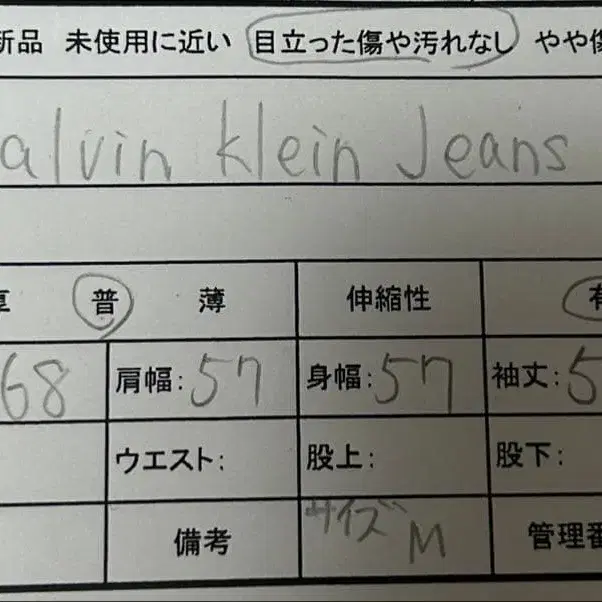 新品 未使用に近い 目立った傷や汚れなし やや傷
alvin klein Jeans
普 薄 伸縮性 有
68 肩幅: 57 身幅: 57 袖丈: 5
ウエスト: 股上: 股下:
備考 サイズ M 管理番